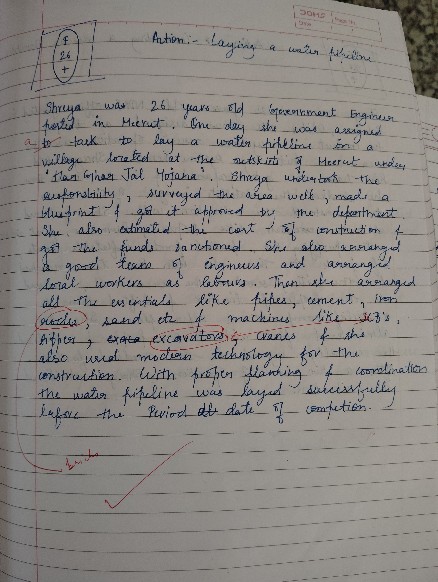 F
26
+
Action:- Laying a water pipeline
Shreya was 26 years old Government Engineer
posted in Meerut. One day she was assigned
a
to task to lay a water pipeline on a
village located at the outskirts of Meerut under
"Har Ghar Jal Yojana". Shreya undertook the
responsibility, surveyed the area well, made a
blueprint & got it approved by the department
She also estimated the cost of construction &
got the funds sanctioned. She also arranged
a good team of engineers and arranged
local workers as labours. Then she arranged
all the essentials like pipes, cement, iron
rodes, sand etc & machines like JCB's,
excavators, cranes & she
also used modern technology for the
construction. With proper planning & coordination
the water pipeline was layed sucessfully
before the Period date of competion.